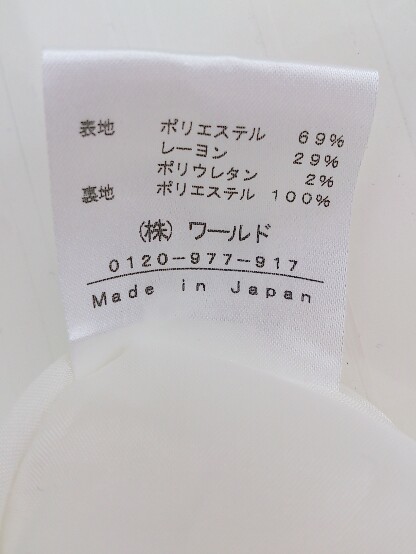 表地 ポリエステル 69%
レーヨン 29%
ポリウレタン 2%
裏地 ポリエステル 100%
(株) ワールド
0120-977-917
Made in Japan